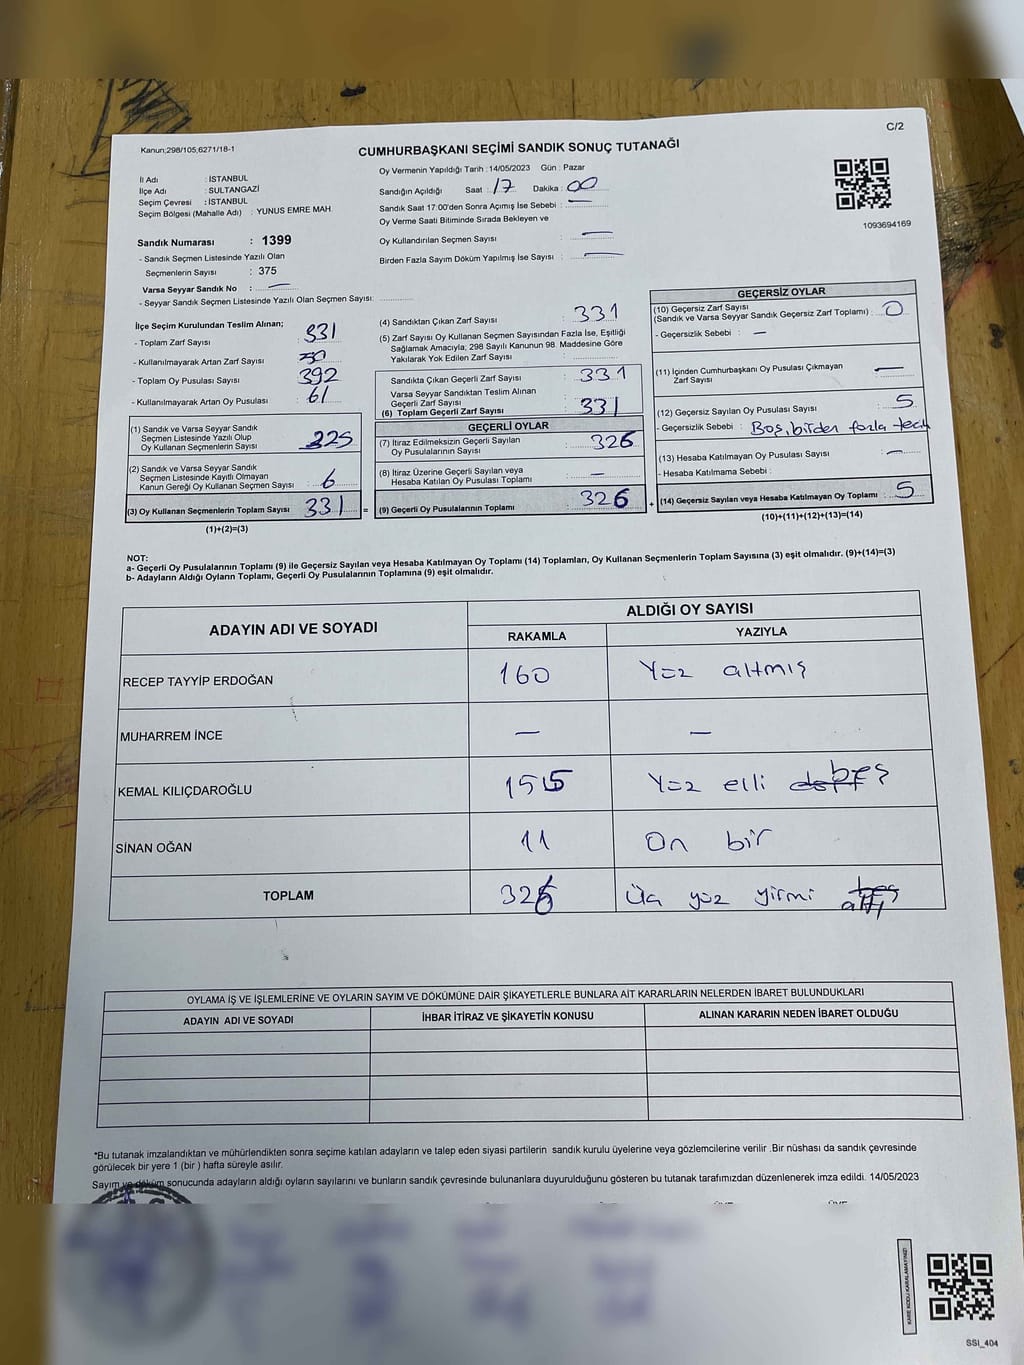 C/2
Kanun;298/105;6271/18-1
CUMHURBAŞKANI SEÇİMİ SANDIK SONUÇ TUTANAĞI
İl Adı : İSTANBUL
İlçe Adı : SULTANGAZİ
Seçim Çevresi : İSTANBUL
Seçim Bölgesi (Mahalle Adı) : YUNUS EMRE MAH.
Sandık Numarası : 1399
- Sandık Seçmen Listesinde Yazılı Olan
Seçmenlerin Sayısı : 375
Varsa Seyyar Sandık No : —
- Seyyar Sandık Seçmen Listesinde Yazılı Olan Seçmen Sayısı:
Oy Vermenin Yapıldığı Tarih :14/05/2023 Gün : Pazar
Sandığın Açıldığı Saat : 17 Dakika : 00
Sandık Saat 17:00'den Sonra Açımış İse Sebebi : —
Oy Verme Saati Bitiminde Sırada Bekleyen ve
Oy Kullandırılan Seçmen Sayısı : —
Birden Fazla Sayım Döküm Yapılmış İse Sayısı : —
1093694169
İlçe Seçim Kurulundan Teslim Alınan;
- Toplam Zarf Sayısı : 331
- Kullanılmayarak Artan Zarf Sayısı :
- Toplam Oy Pusulası Sayısı : 392
- Kullanılmayarak Artan Oy Pusulası : 61
(1) Sandık ve Varsa Seyyar Sandık
Seçmen Listesinde Yazılı Olup
Oy Kullanan Seçmenlerin Sayısı : 325
(2) Sandık ve Varsa Seyyar Sandık
Seçmen Listesinde Kayıtlı Olmayan
Kanun Gereği Oy Kullanan Seçmen Sayısı : 6
(3) Oy Kullanan Seçmenlerin Toplam Sayısı : 331
(1)+(2)=(3)
(4) Sandıktan Çıkan Zarf Sayısı : 331
(5) Zarf Sayısı Oy Kullanan Seçmen Sayısından Fazla İse, Eşitliği
Sağlamak Amacıyla; 298 Sayılı Kanunun 98. Maddesine Göre
Yakılarak Yok Edilen Zarf Sayısı :
Sandıkta Çıkan Geçerli Zarf Sayısı : 331
Varsa Seyyar Sandıktan Teslim Alınan
Geçerli Zarf Sayısı :
(6) Toplam Geçerli Zarf Sayısı : 331
GEÇERLİ OYLAR
(7) İtiraz Edilmeksizin Geçerli Sayılan
Oy Pusulalarının Sayısı : 326
(8) İtiraz Üzerine Geçerli Sayılan veya
Hesaba Katılan Oy Pusulası Toplamı : —
(9) Geçerli Oy Pusulalarının Toplamı : 326
GEÇERSİZ OYLAR
(10) Geçersiz Zarf Sayısı
(Sandık ve Varsa Seyyar Sandık Geçersiz Zarf Toplamı) : 0
- Geçersizlik Sebebi : —
(11) İçinden Cumhurbaşkanı Oy Pusulası Çıkmayan
Zarf Sayısı : —
(12) Geçersiz Sayılan Oy Pusulası Sayısı : 5
- Geçersizlik Sebebi : Boş, birden fazla
(13) Hesaba Katılmayan Oy Pusulası Sayısı : —
- Hesaba Katılmama Sebebi :
(14) Geçersiz Sayılan veya Hesaba Katılmayan Oy Toplamı : 5
(10)+(11)+(12)+(13)=(14)
NOT:
a- Geçerli Oy Pusulalarının Toplamı (9) ile Geçersiz Sayılan veya Hesaba Katılmayan Oy Toplamı (14) Toplamları, Oy Kullanan Seçmenlerin Toplam Sayısına (3) eşit olmalıdır. (9)+(14)=(3)
b- Adayların Aldığı Oyların Toplamı, Geçerli Oy Pusulalarının Toplamına (9) eşit olmalıdır.
ADAYIN ADI VE SOYADI
ALDIĞI OY SAYISI
RAKAMLA YAZIYLA
RECEP TAYYİP ERDOĞAN 160 Yüz altmış
MUHARREM İNCE — —
KEMAL KILIÇDAROĞLU 155 Yüz elli beş
SİNAN OĞAN 11 On bir
TOPLAM 326 Üç yüz yirmi altı
OYLAMA İŞ VE İŞLEMLERİNE VE OYLARIN SAYIM VE DÖKÜMÜNE DAİR ŞİKAYETLERLE BUNLARA AİT KARARLARIN NELERDEN İBARET BULUNDUKLARI
ADAYIN ADI VE SOYADI İHBAR İTİRAZ VE ŞİKAYETİN KONUSU ALINAN KARARIN NEDEN İBARET OLDUĞU
*Bu tutanak imzalandıktan ve mühürlendikten sonra seçime katılan adayların ve talep eden siyasi partilerin sandık kurulu üyelerine veya gözlemcilerine verilir .Bir nüshası da sandık çevresinde
görülecek bir yere 1 (bir ) hafta süreyle asılır.
Sayım ve döküm sonucunda adayların aldığı oyların sayılarını ve bunların sandık çevresinde bulunanlara duyurulduğunu gösteren bu tutanak tarafımızdan düzenlenerek imza edildi. 14/05/2023
KARE KODU KARALAMAYINIZ!
SSI_404